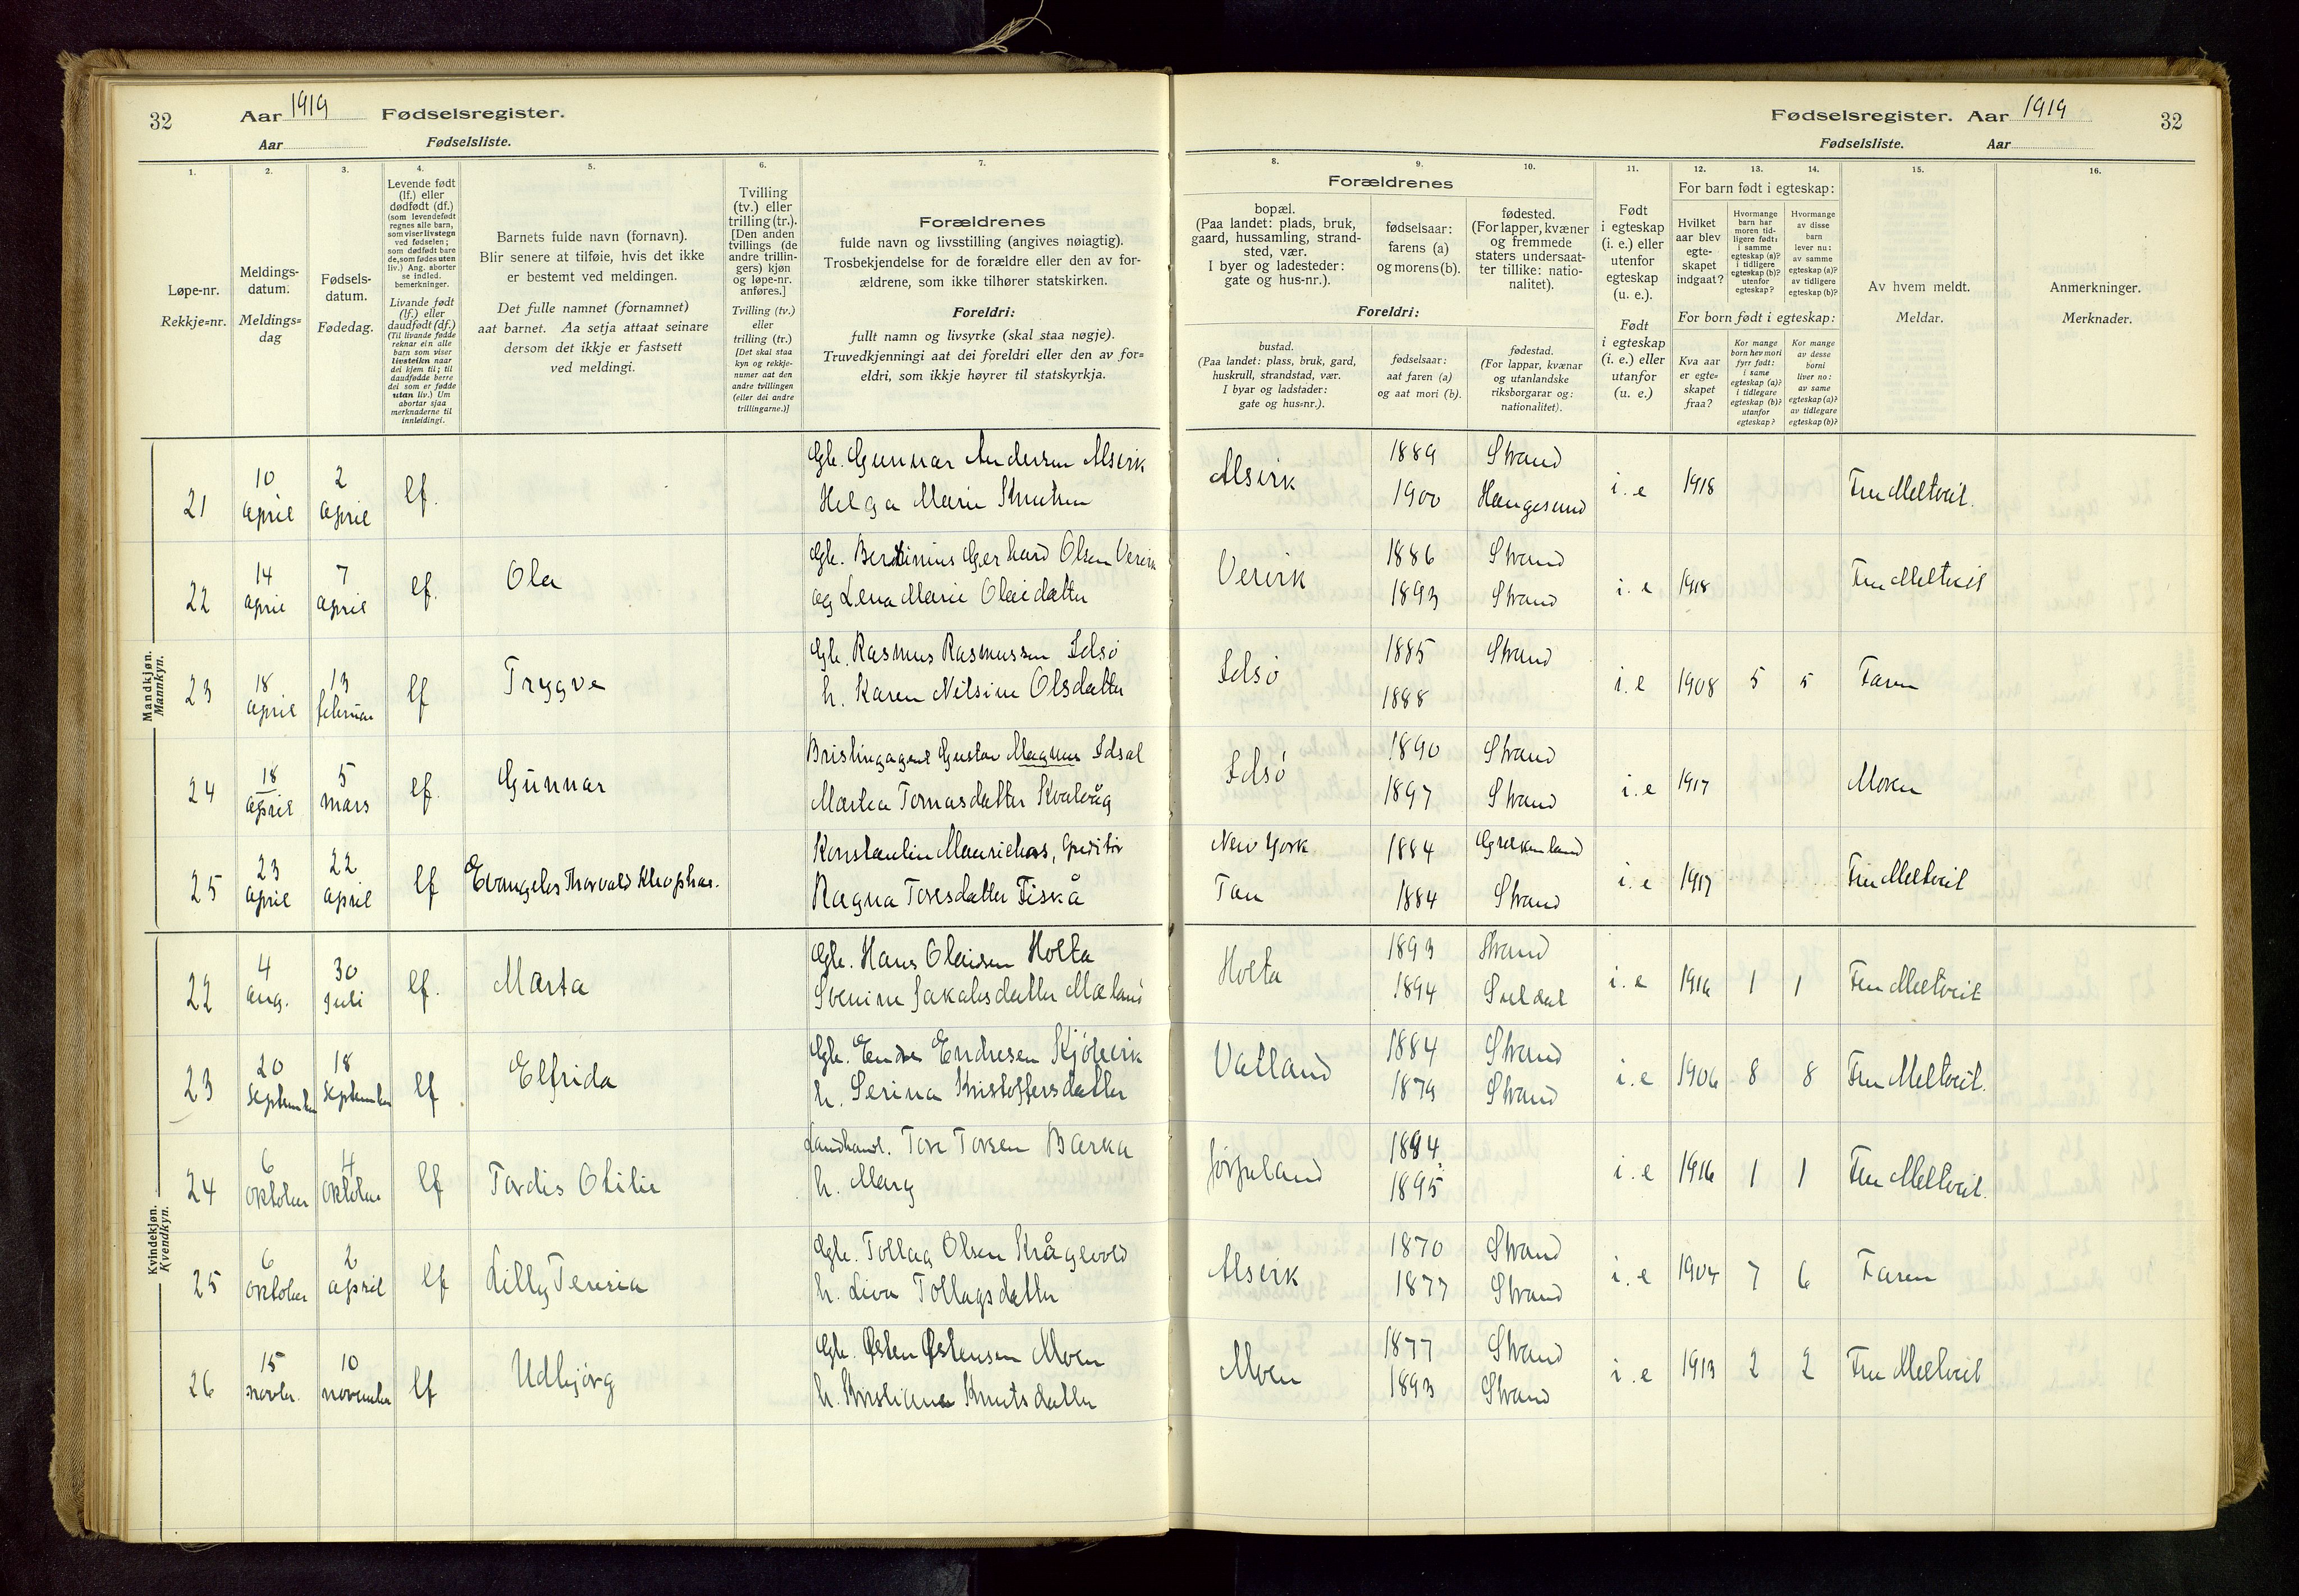 32
Aar 1919 Fødselsregister.
Aar Fødselsliste.
Fødselsregister. Aar 1919
32
Fødselsliste. Aar
1. 2. 3. 4. 5. 6. 7.
Løpe-nr.
Rekkje=nr.
Meldings-
datum.
Meldings=
dag
Fødsels-
datum.
Fødedag.
Levende født
(lf.) eller
dødfødt (df.)
(som levendefødt
regnes alle barn,
som viser livstegn
ved fødselen;
som dødfødt bare
de, som fødes uten
liv.) Ang. aborter
se indled.
bemerkninger.
Livande født
(lf.) eller
daudfødt (df.)
(Til livande fødde
reknar ein alle
barn som viser
livsteikn naar
dei kjem til; til
daudfødde berre
dei som er fødde
utan liv.) Um
abortar sjaa
merknaderne til
innleidingi.
Barnets fulde navn (fornavn).
Blir senere at tilføie, hvis det ikke
er bestemt ved meldingen.
Det fulle namnet (fornamnet)
aat barnet. Aa setja attaat seinare
dersom det ikkje er fastsett
ved meldingi.
Tvilling
(tv.) eller
trilling (tr.).
[Den anden
tvillings (de
andre trillin-
gers) kjøn
og løpe-nr.
anføres.]
Tvilling (tv.)
eller
trilling (tr.)
[Det skal staa
kyn og rekkje-
numer aat den
andre tvillingen
(eller dei andre
trillingarne.)]
Forældrenes
fulde navn og livsstilling (angives nøiagtig).
Trosbekjendelse for de forældre eller den av for-
ældrene, som ikke tilhører statskirken.
Foreldri:
fullt namn og livsyrke (skal staa nøgje).
Truvedkjenningi aat dei foreldri eller den av for=
eldri, som ikkje høyrer til statskyrkja.
8. 9. 10. 11. 12. 13. 14. 15. 16.
Forældrenes
bopæl.
(Paa landet: plads, bruk,
gaard, hussamling, strand-
sted, vær.
I byer og ladesteder:
gate og hus-nr.).
fødselsaar:
farens (a)
og morens (b).
fødested.
(For lapper, kvæner
og fremmede
staters undersaat-
ter tillike: natio-
nalitet).
Foreldri:
bustad.
(Paa landet: plass, bruk, gard,
huskrull, strandstad, vær.
I byar og ladstader:
gate og hus=nr.).
fødselsaar:
aat faren (a)
og aat mori (b).
fødestad.
(For lappar, kvænar
og utanlandske
riksborgarar og:
nationalitet).
Født
i egteskap
(i. e.) eller
utenfor
egteskap
(u. e.).
Født
i egteskap
(i. e.) eller
utanfor
(u. e.)
For barn født i egteskap:
Hvilket
aar blev
egte-
skapet
indgaat?
Hvormange
barn har
moren tid-
ligere født:
i samme
egteskap (a)?
i tidligere
egteskap (b)?
utenfor
egteskap?
Hvormange
av disse
barn
lever nu:
av samme
egteskap (a)?
av tidligere
egteskap (b)?
For born født i egteskap:
Kva aar
er egte=
skapet
fraa?
Kor mange
born hev mori
fyrr født:
i same
egteskap (a)?
i tidlegare
egteskap (b)?
utanfor
egteskap?
Kor mange
av desse
borni
liver no:
av same
egteskap (a)?
av tidlegare
egteskap (b)?
Av hvem meldt.
Meldar.
Anmerkninger.
Merknader.
Mandkjøn.
Mannkyn.
21 10 april 2 april lf. Gbr. Gunnar Andersen Alsvik
Helga Marie Knutsen
Alsvik 1889 Strand
1900 Haugesund
i. e 1918 Fru Meltveit.
22 14 april 7 april lf. Ola Gbr. Bertinius Gerhard Olsen Vervik
og Lena Marie Olaidatter
Vervik 1886 Strand
1893 Strand
i. e 1918 Fru Meltveit
23 18 april 13 februar lf Trygve Gbr. Rasmus Rasmussen Idsø
h. Karen Nilsine Olsdatter
Idsø 1885 Strand
1888
i. e 1908 5 5 Faren
24 18 april 5 mars lf. Gunnar Brislingagent Gustav Magnus Idsal
Martha Tomasdatter Kvalvåg
Idsø 1890 Strand
1897 Strand
i. e 1917 Moren
25 23 april 22 april lf Evangelos Thorvald Kleophas. Konstantin
Ragna Toresdatter Fiskå
New York 1884 Grækenland
Tau 1884 Strand
i. e 1917 Fru Meltveit
Kvindekjøn.
Kvendkyn.
22 4 aug. 30 juli lf. Marta Gbr. Hans Olaisen Holta
Sverine Jakobsdatter Mæland
Holta 1893 Strand
1894 Suldal
i. e 1916 1 1 Fru Meltveit
23 20 September 18 September lf Elfrida Gbr. Endre Endresen Skjølvik
h. Serina Kristoffersdatter
Vatland 1884 Strand
1879 Strand
i. e 1906 8 8 Fru Meltveit.
24 6 Oktober 4 Oktober lf Tordis Otilie Landhandl. Tore Toresen Barka
h. Mary
Jørpeland 1884
1895
i. e 1916 1 1 Fru Meltveit.
25 6 Oktober 2 april lf Lilly Teresia Gbr. Tollag Olsen Krågevold
h. Liva Tollagsdatter
Alsvik 1870 Strand
1877 Strand
i. e 1904 7 6 Faren
26 15 novbr. 10 november lf Udbjørg Gbr. Østen Østensen Moen
h. Kristiane Knutsdatter
Moen 1877 Strand
1893 Strand
i. e 1913 2 2 Fru Meltveit